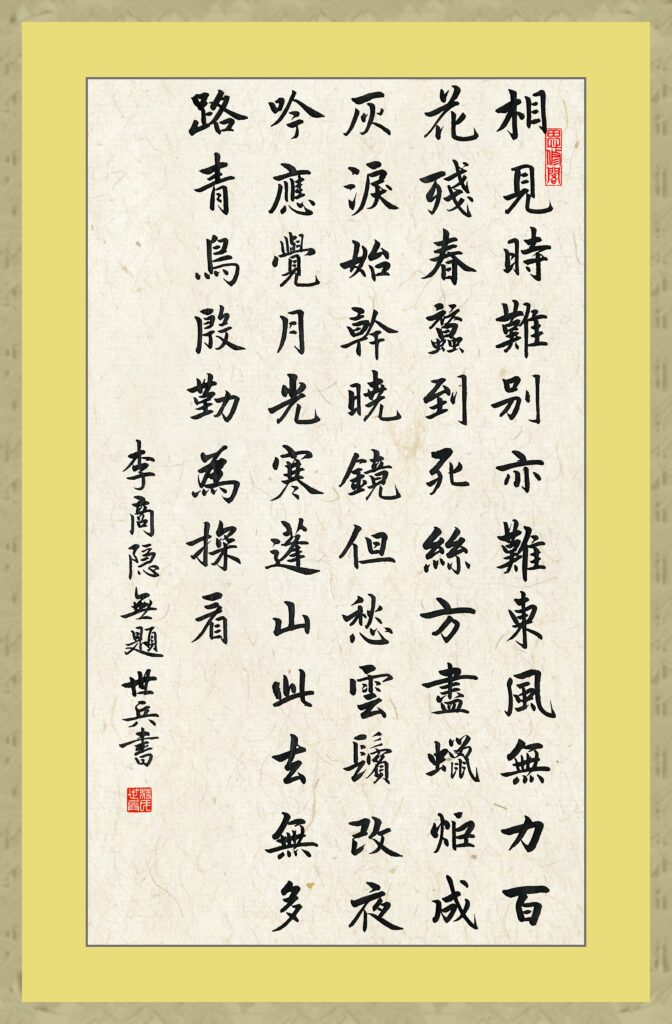 相見時難別亦難東風無力百
花殘春蠶到死絲方盡蠟炬成
灰淚始幹曉鏡但愁雲鬢改夜
吟應覺月光寒蓬山此去無多
路青鳥殷勤為探看
李商隐無題世兵書